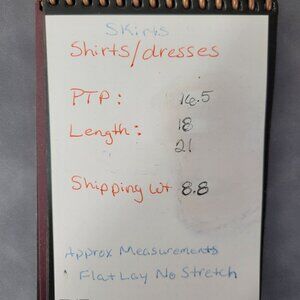 Skirts
Shirts/dresses
PTP: 16.5
Length: 18
21
Shipping wt 8.8
Approx Measurements
Flat Lay No Stretch